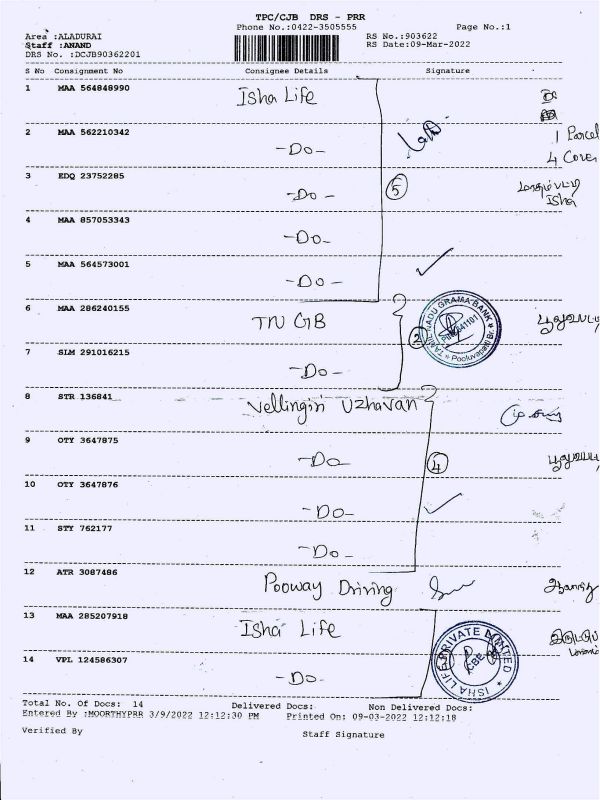 TPC/CJB DRS - PRR
Phone No.:0422-3505555 Page No.:1
Area :ALADURAI RS No.:903622
Staff :ANAND RS Date:09-Mar-2022
DRS No. :DCJB90362201
S No Consignment No Consignee Details Signature
1 MAA 564848990 Isha Life
2 MAA 562210342 -Do- 1 Parcel
4 Cover
3 EDQ 23752285 -Do- 5
Isha
4 MAA 857053343 -Do-
5 MAA 564573001 -Do-
6 MAA 286240155 TN GB
TAMIL NADU GRAMA BANK
PIN 641101
Pooluvapatti Br.
2
7 SLM 291016215 -Do-
8 STR 136841 Vellingiri Uzhavan
9 OTY 3647875 -Do- 4
10 OTY 3647876 -Do-
11 STY 762177 -Do-
12 ATR 3087486 Pooway Driving
13 MAA 285207918 Isha Life
ISHA LIFE PRIVATE LIMITED
CBE
14 VPL 124586307 -Do-
Total No. Of Docs: 14 Delivered Docs: Non Delivered Docs:
Entered By :MOORTHYPRR 3/9/2022 12:12:30 PM Printed On: 09-03-2022 12:12:18
Verified By Staff Signature